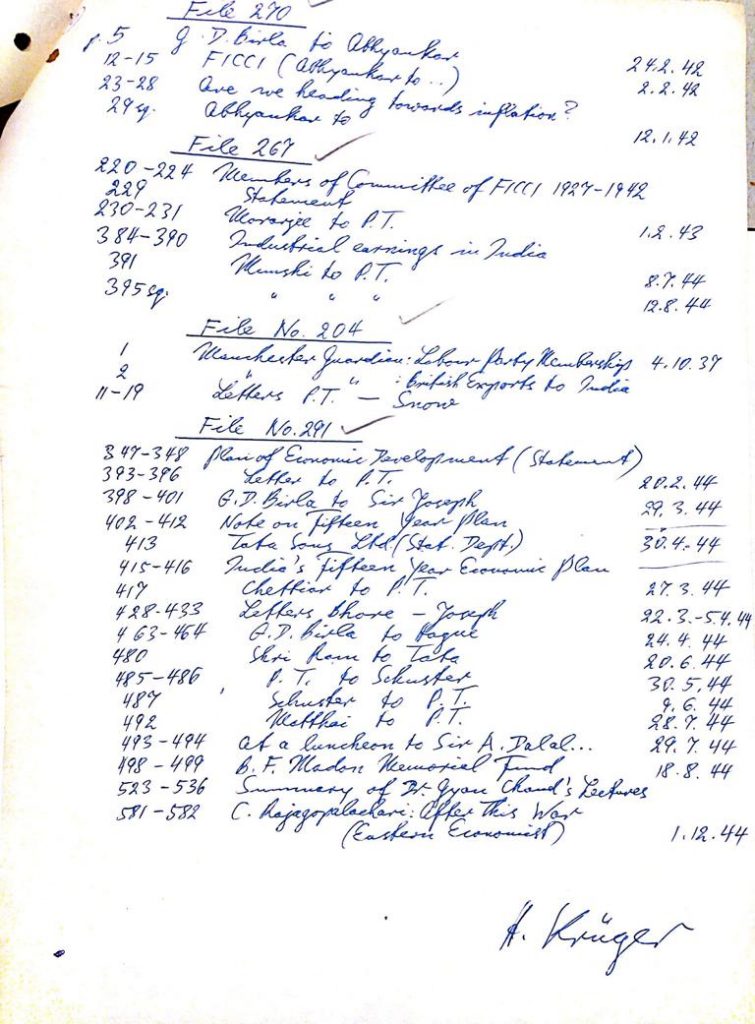 File 270
p. 5 G. D. Birla to Abhyankar 24.2.42
12-15 FICCI (Abhyankar to ..) 2.2.42
23-28 Are we heading towards inflation?
29 sq. Abhyankar to 12.1.42
File 267
220-224 Members of Committee of FICCI 1927-1942
229 Statement
230-231 Morarjee to P.T. 1.2.43
384-390 Industrial earnings in India
391 Munshi to P.T. 8.7.44
395 sq. " " " 12.8.44
File No. 204
1 Manchester Guardian: Labour Party Membership 4.10.37
2 " " : British Exports to India
11-19 Letters P.T. - Snow
File No. 291
347-348 Plan of Economic Development (Statement)
393-396 Letter to P.T. 20.2.44
398-401 G.D. Birla to Sir Joseph 29.3.44
402-412 Note on Fifteen Year Plan
413 Tata Sons Ltd. (Stat. Dept.) 30.4.44
415-416 India's Fifteen Year Economic Plan
417 Chettiar to P.T. 27.3.44
428-433 Letters Bhore - Joseph 22.3.-5.4.44
463-464 G.D. Birla to Hague 24.4.44
480 Shri Ram to Tata 20.6.44
485-486 P.T. to Schuster 30.5.44
487 Schuster to P.T. 9.6.44
492 Matthai to P.T. 28.7.44
493-494 At a luncheon to Sir A. Dalal... 29.7.44
498-499 B. F. Madon Memorial Fund 18.8.44
523-536 Summary of Dr. Gyan Chand's Lectures
581-582 C. Rajagopalachari: After This War
(Eastern Economist) 1.12.44
H. Krüger